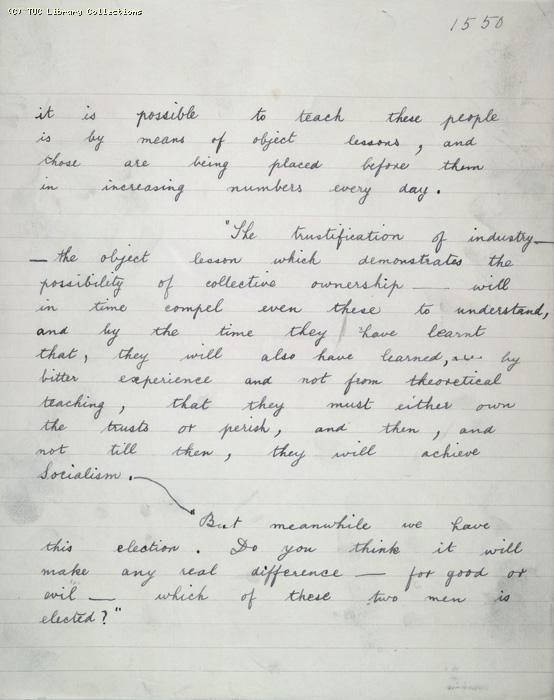 (C) TUC Library Collections
1550
it is possible to teach these people
is by means of object lessons, and
those are being placed before them
in increasing numbers every day.
"The trustification of industry—
— the object lesson which demonstrates the
possibility of collective ownership — will
in time compel even these to understand,
and by the time they have learnt
that, they will also have learned, by
bitter experience and not from theoretical
teaching, that they must either own
the trusts or perish, and then, and
not till then, they will achieve
Socialism.
"But meanwhile we have
this election. Do you think it will
make any real difference — for good or
evil — which of these two men is
elected?"